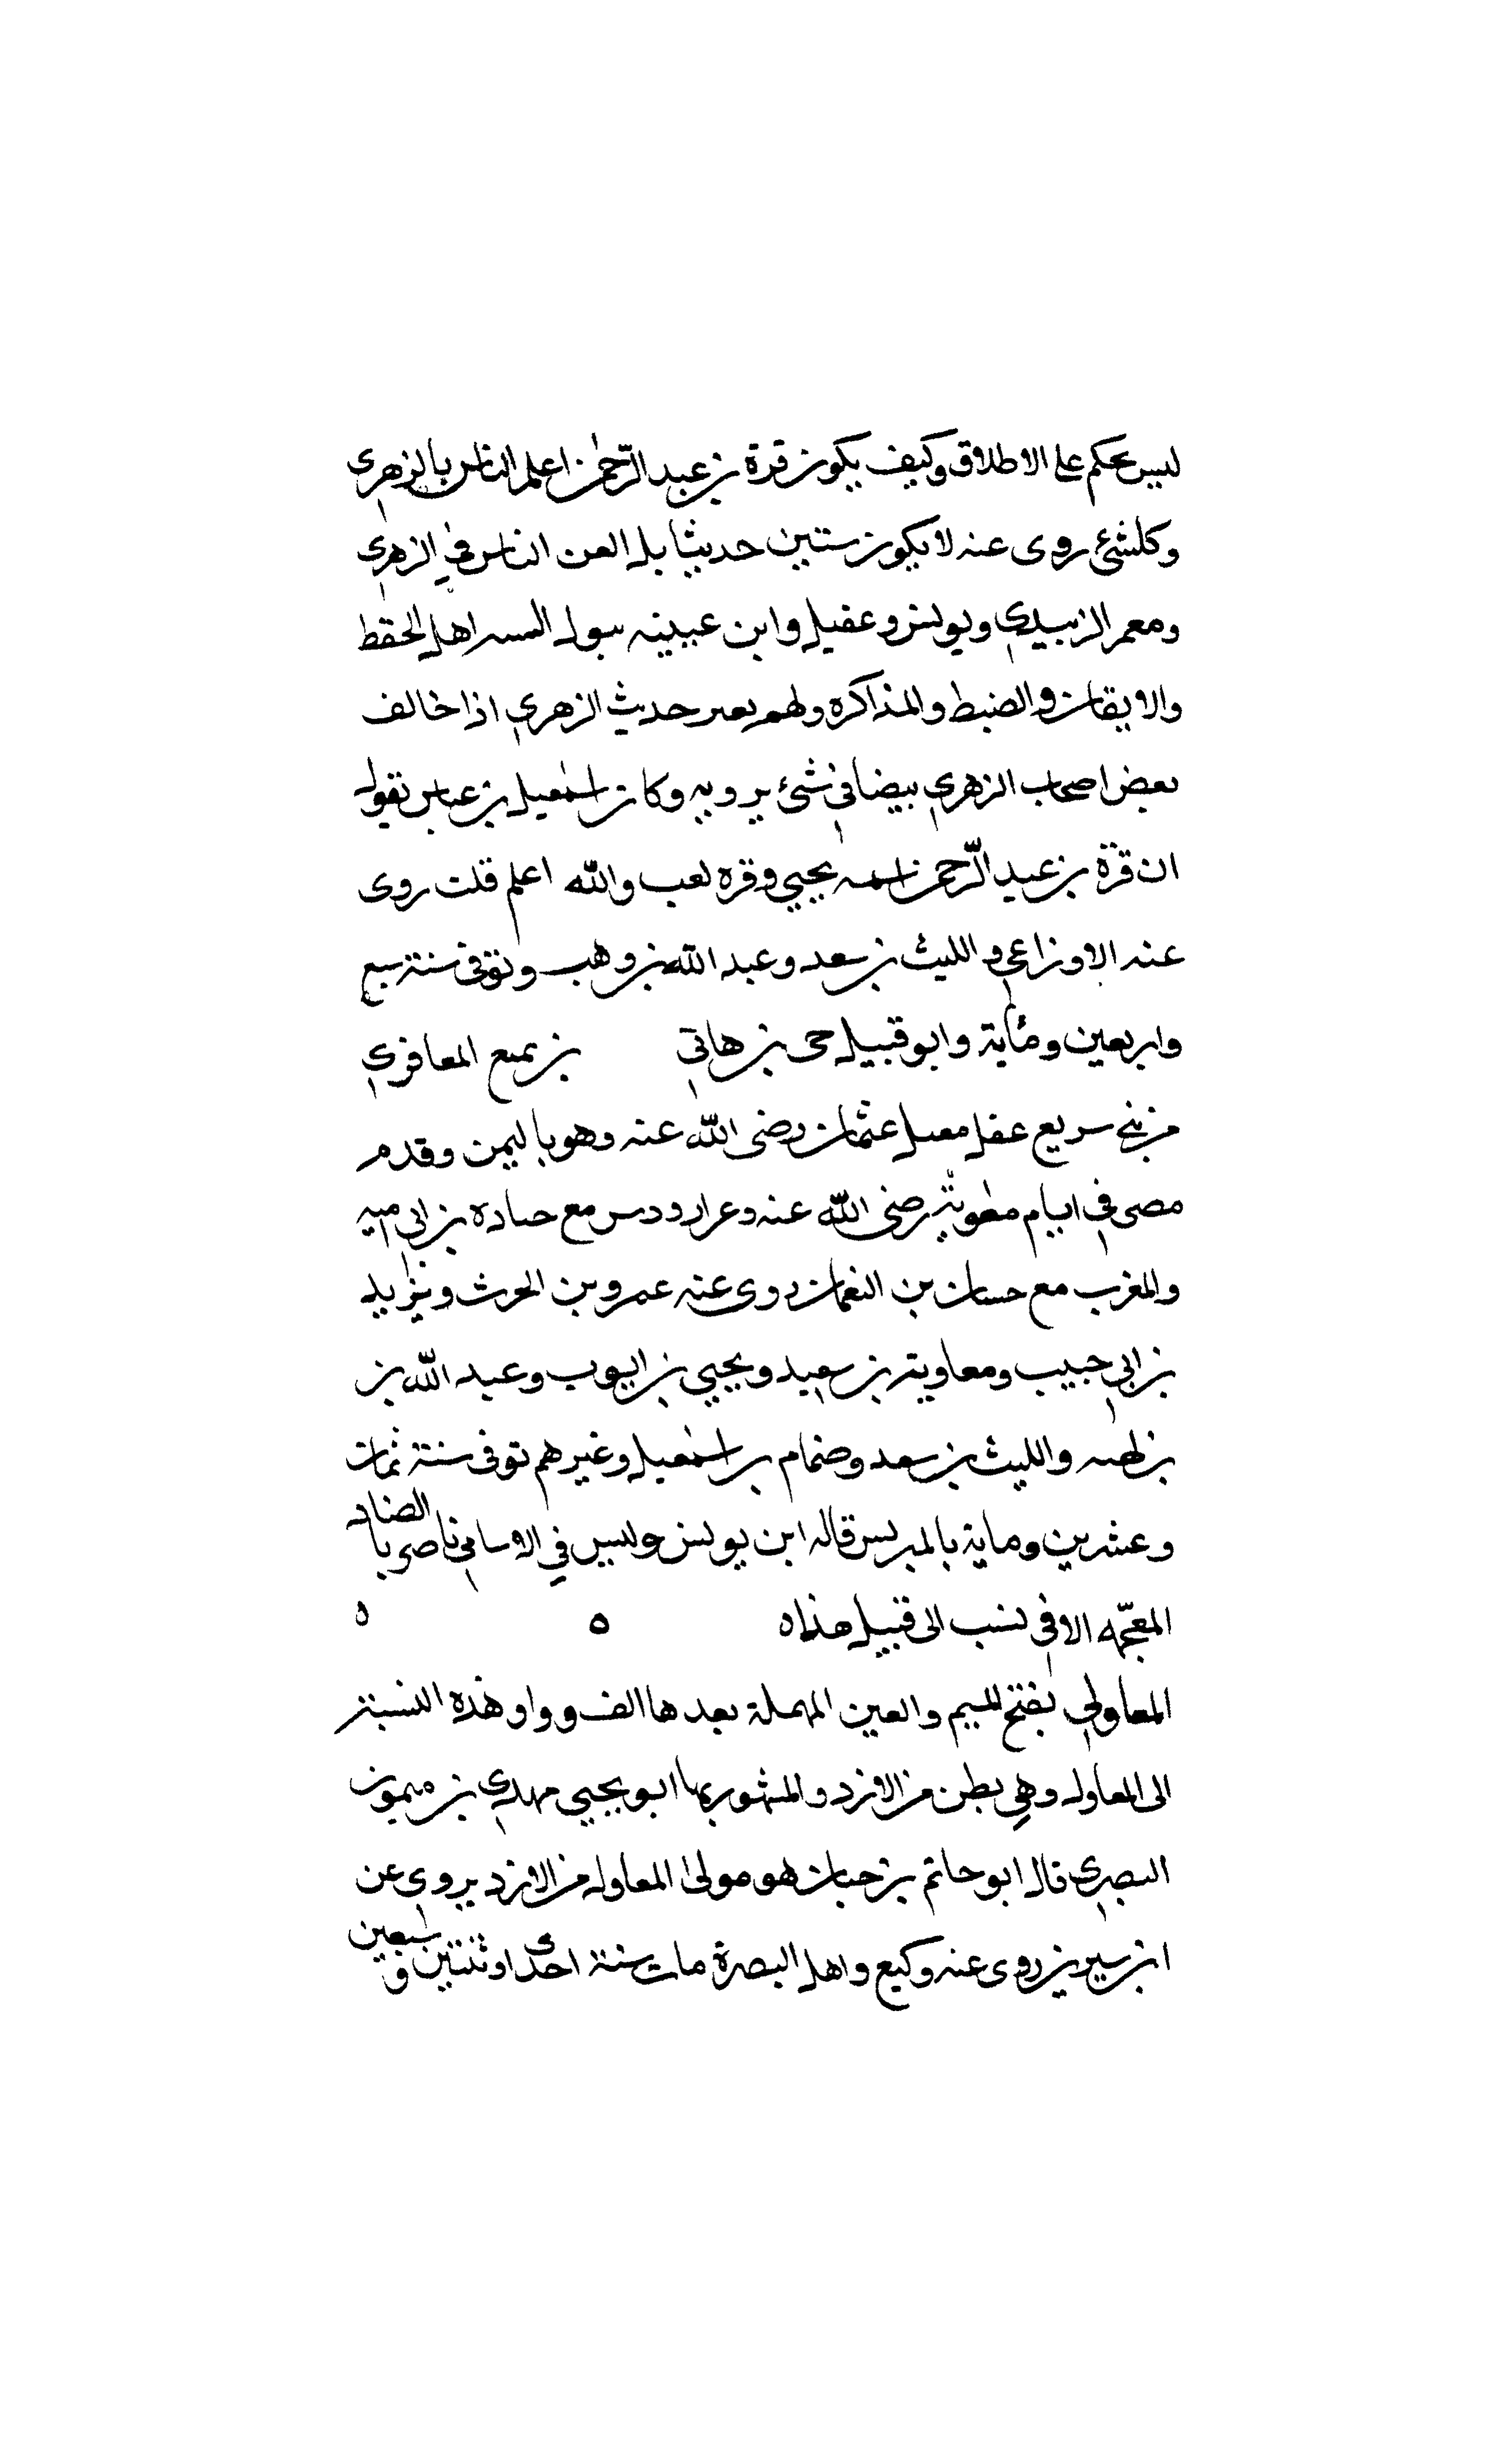 ليس يحكم على الاطلاق وكيف يكون قرة بن عبد الرحمن اعلم الناس بالزهرى
وكلشئ روى عنه لا يكون ستين حديثا بل الناس في الزهري
ومعمر الزبيدي ويونس وعقيل وابن عيينه اهل الحفظ
والايقان والضبط والمذاكرة ولهم حديث الزهري اذا خالف
بعض اصحاب الزهري بيضا في شئ يرويه وكان اسمعيل بن عياش يقول
ان قرة بن عبد الرحمن اسمه يحيى وقره لقب والله اعلم قلت روى
عنه الاوزاعي والليث بن سعد وعبد الله بن وهب وتوفى سنة سبع
واربعين ومائة وابو قبيل حى بن هانى بن يميع المعافري
من بني سريع عقل عثمان رضى الله عنه وهو باليمن وقدم
مصر في ايام معوية رضى الله عنه مع جناده بن ابي اميه
والمغرب مع حسان بن النعمان روى عنه عمرو بن الحرث ويزيد
بن ابي حبيب ومعاوية بن سعيد ويحيى بن ايوب وعبد الله بن
بن لهيعه والليث بن سعد وضمام بن اسمعيل وغيرهم توفى سنة ثمان
وعشرين وماية بالبرلس قاله ابن يونس وليس في الاسامي ناضر بالضاد
المعجمه الا في نسب الى قبيل هذا ه ه ه
المعاولي بفتح الميم والعين المهملة بعدها الف وواو هذه النسبة
الى المعاول وهي بطن من الازد والمشهور بها ابو يحيى مهدي بن ميمون
البصري قال ابو حاتم بن حبان هو مولى المعاول من الازد يروي عن
ابن سيرين روى عنه وكيع واهل البصرة مات سنة احدى او ثنتين وسبعين